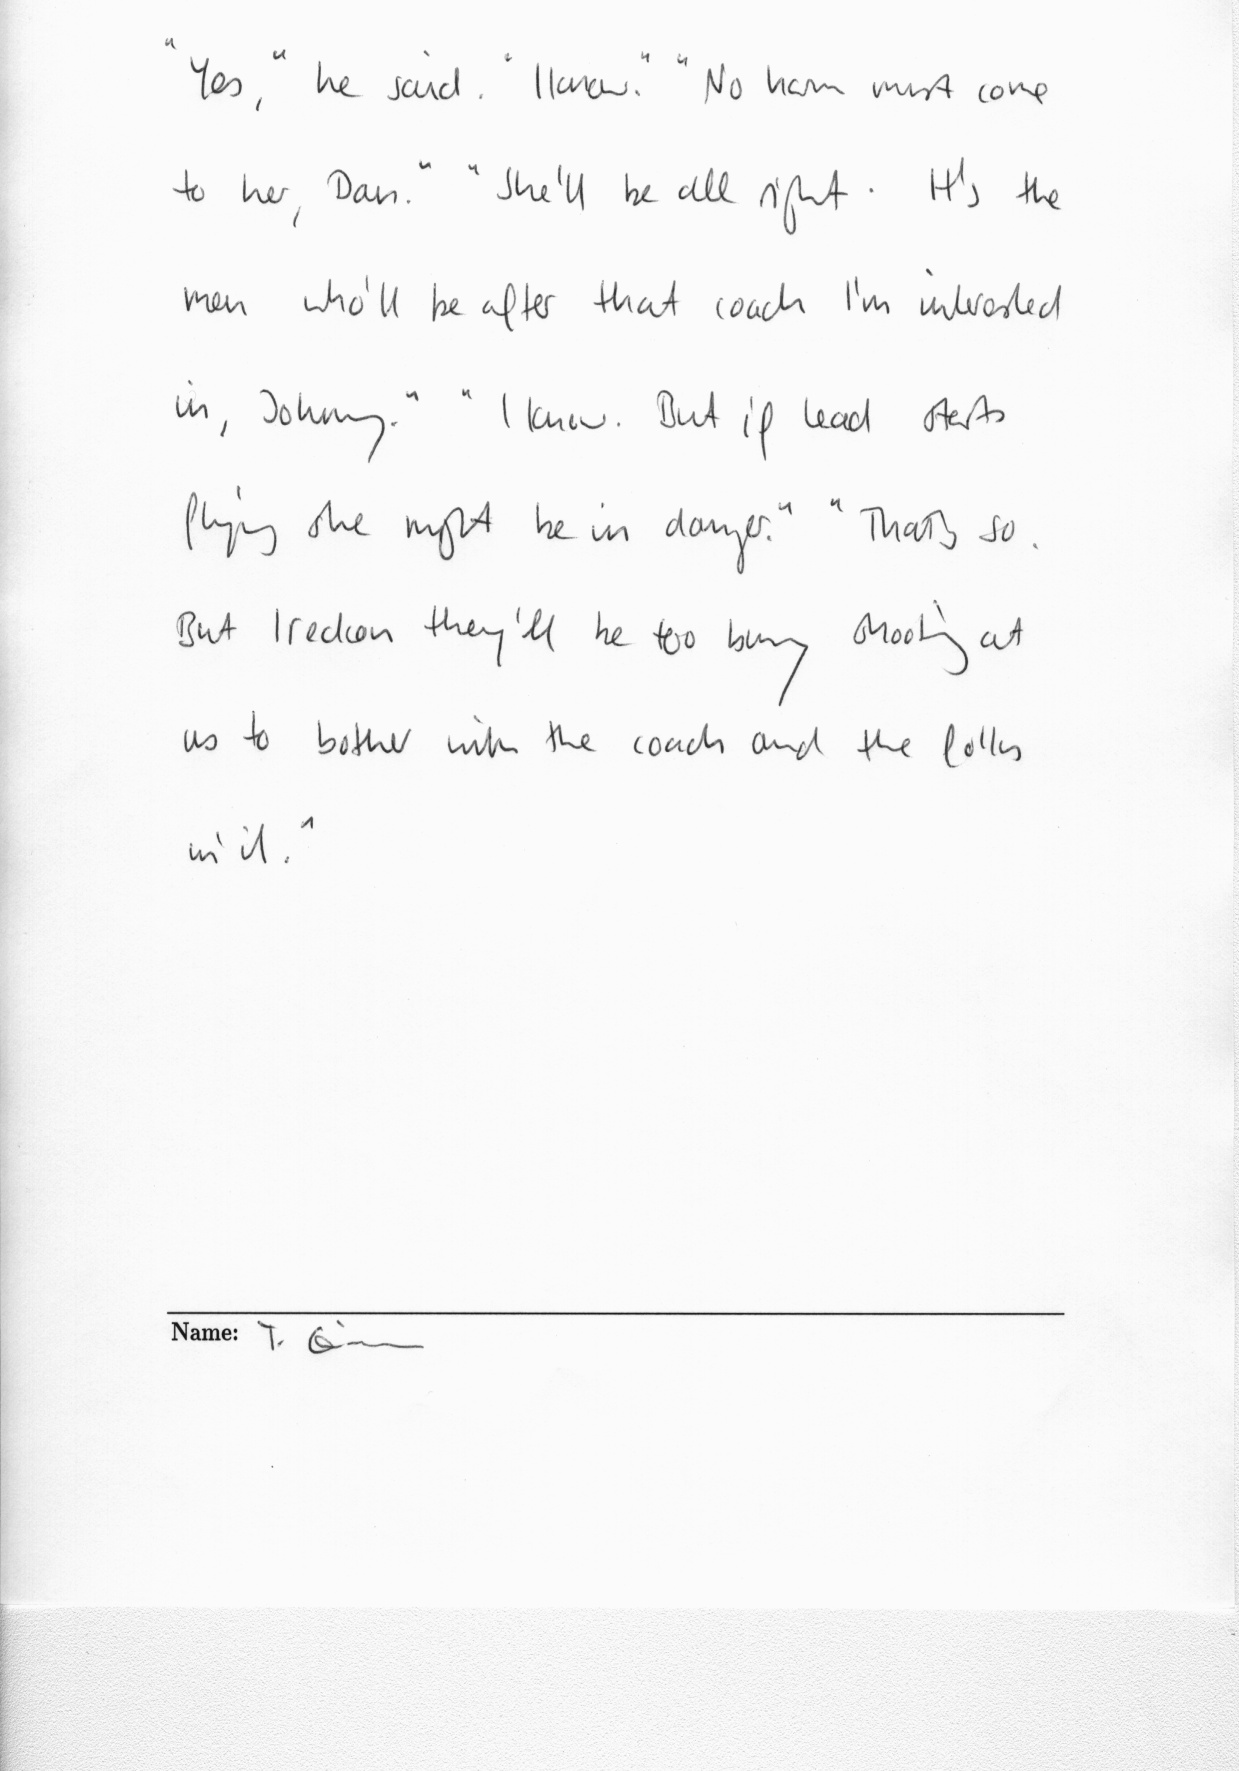 "Yes," he said. "I know." "No harm must come
to her, Dan." "She'll be all right. It's the
men who'll be after that coach I'm interested
in, Johnny." "I know. But if lead starts
flying she might be in danger." "That's so.
But I reckon they'll be too busy shooting at
us to bother with the coach and the folks
in it."
Name: T.